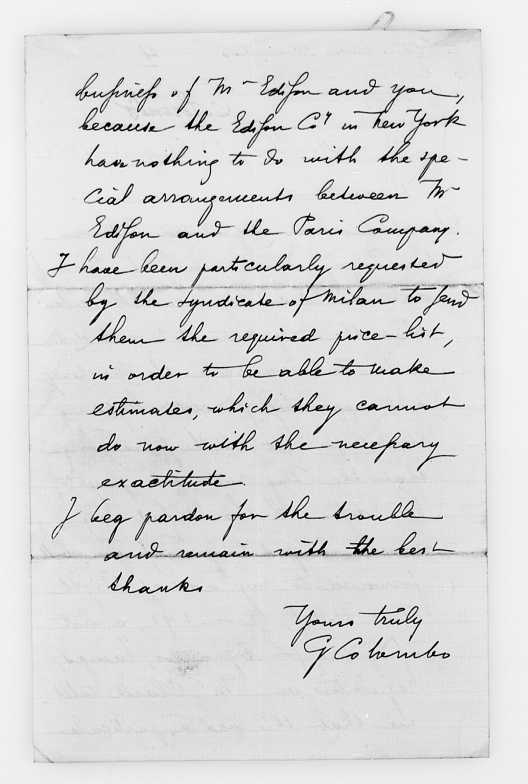 business of Mr Edison and you,
because the Edison Coy in New York
have nothing to do with the spe-
cial arrangements between Mr
Edison and the Paris Company.
I have been particularly requested
by the syndicate of Milan to send
them the required price-list,
in order to be able to make
estimates, which they cannot
do now with the necessary
exactitude.
I beg pardon for the trouble
and remain with the best
thanks
Yours truly
G Colombo